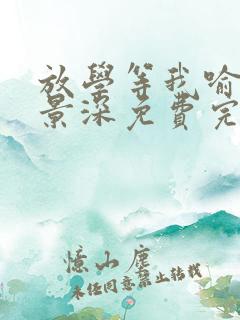 放學等我喻
景深免費完
憶山塵
未任同意禁止轉載